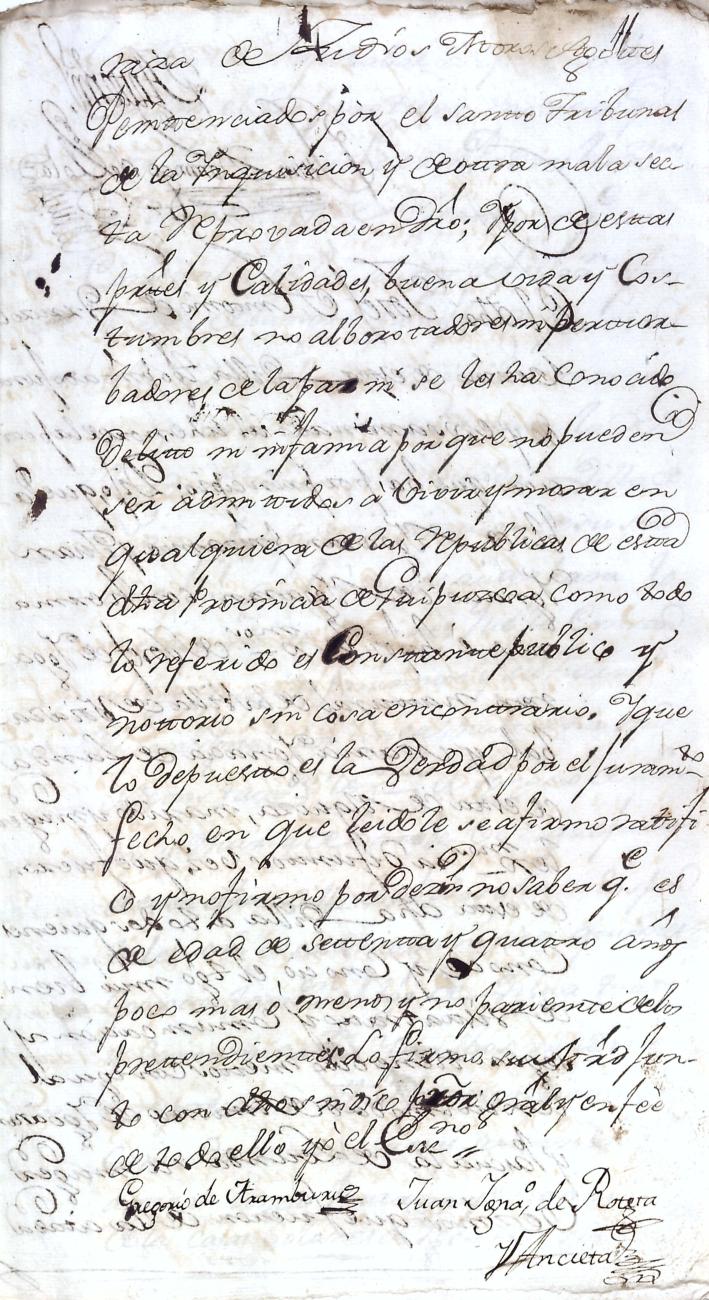 raza de Judios Moros Agotes
Penittenciados por el santto Tribunal
de la Inquisicion y de ottra mala sec-
ta Reprovada en dro; Y por de estas
prttes y Calidades, buena vida y Cos-
tumbres no alborotadores ni perttur-
badores de la paz ni se les ha Conocido
Delitto ni infamia por que no pueden
ser admittidos à Vivir y morar en
qualquiera de las Republicas de estta
dha Provincia de Guipuzcoa, como todo
lo referido es Constante publico y
nottorio sin cosa en conttrario. Y que
lo depuestto es la Verdad por el Juramto
fecho, en que leidole se afirmo ratifi-
co y no firmo por dezir no saber q.e es
de edad de settentta y quatro años
poco mas ò menos y no pariente de los
prettendientes. Lo firmo su Mrd Jun-
to con dho sindico pror gral y en fee
de todo ello yo el Essno
Gregorio de Aramburu Juan Igna.o de Roteta
Y Ancieta